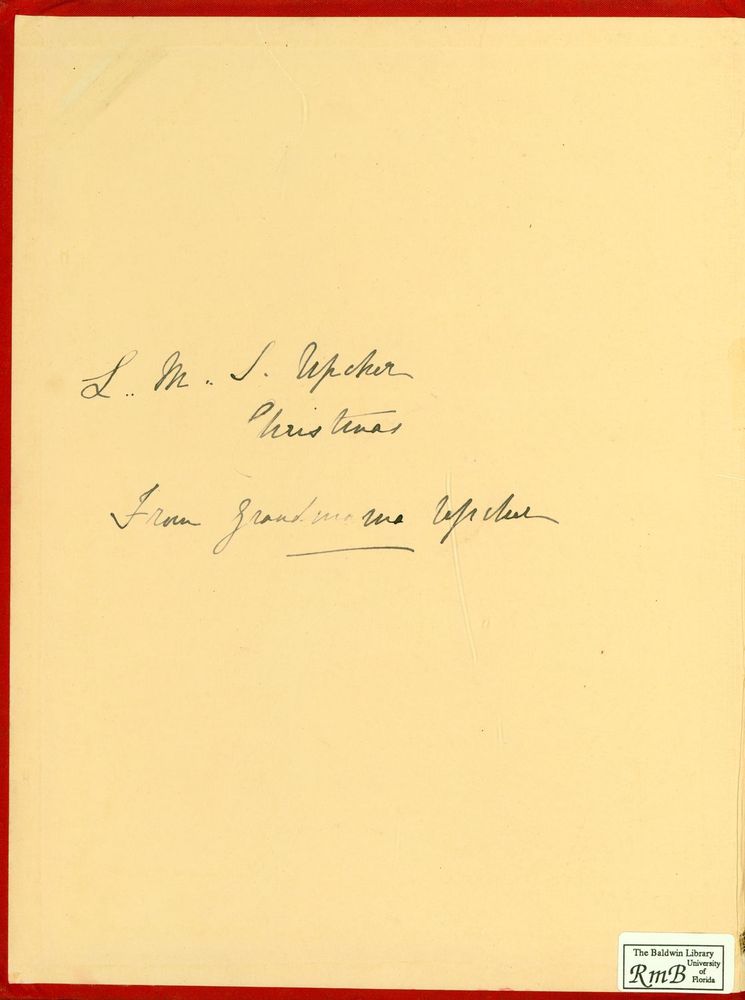 L. M. S. Upcher
Christmas
From Grandmama Upcher
The Baldwin Library
RmB University of Florida